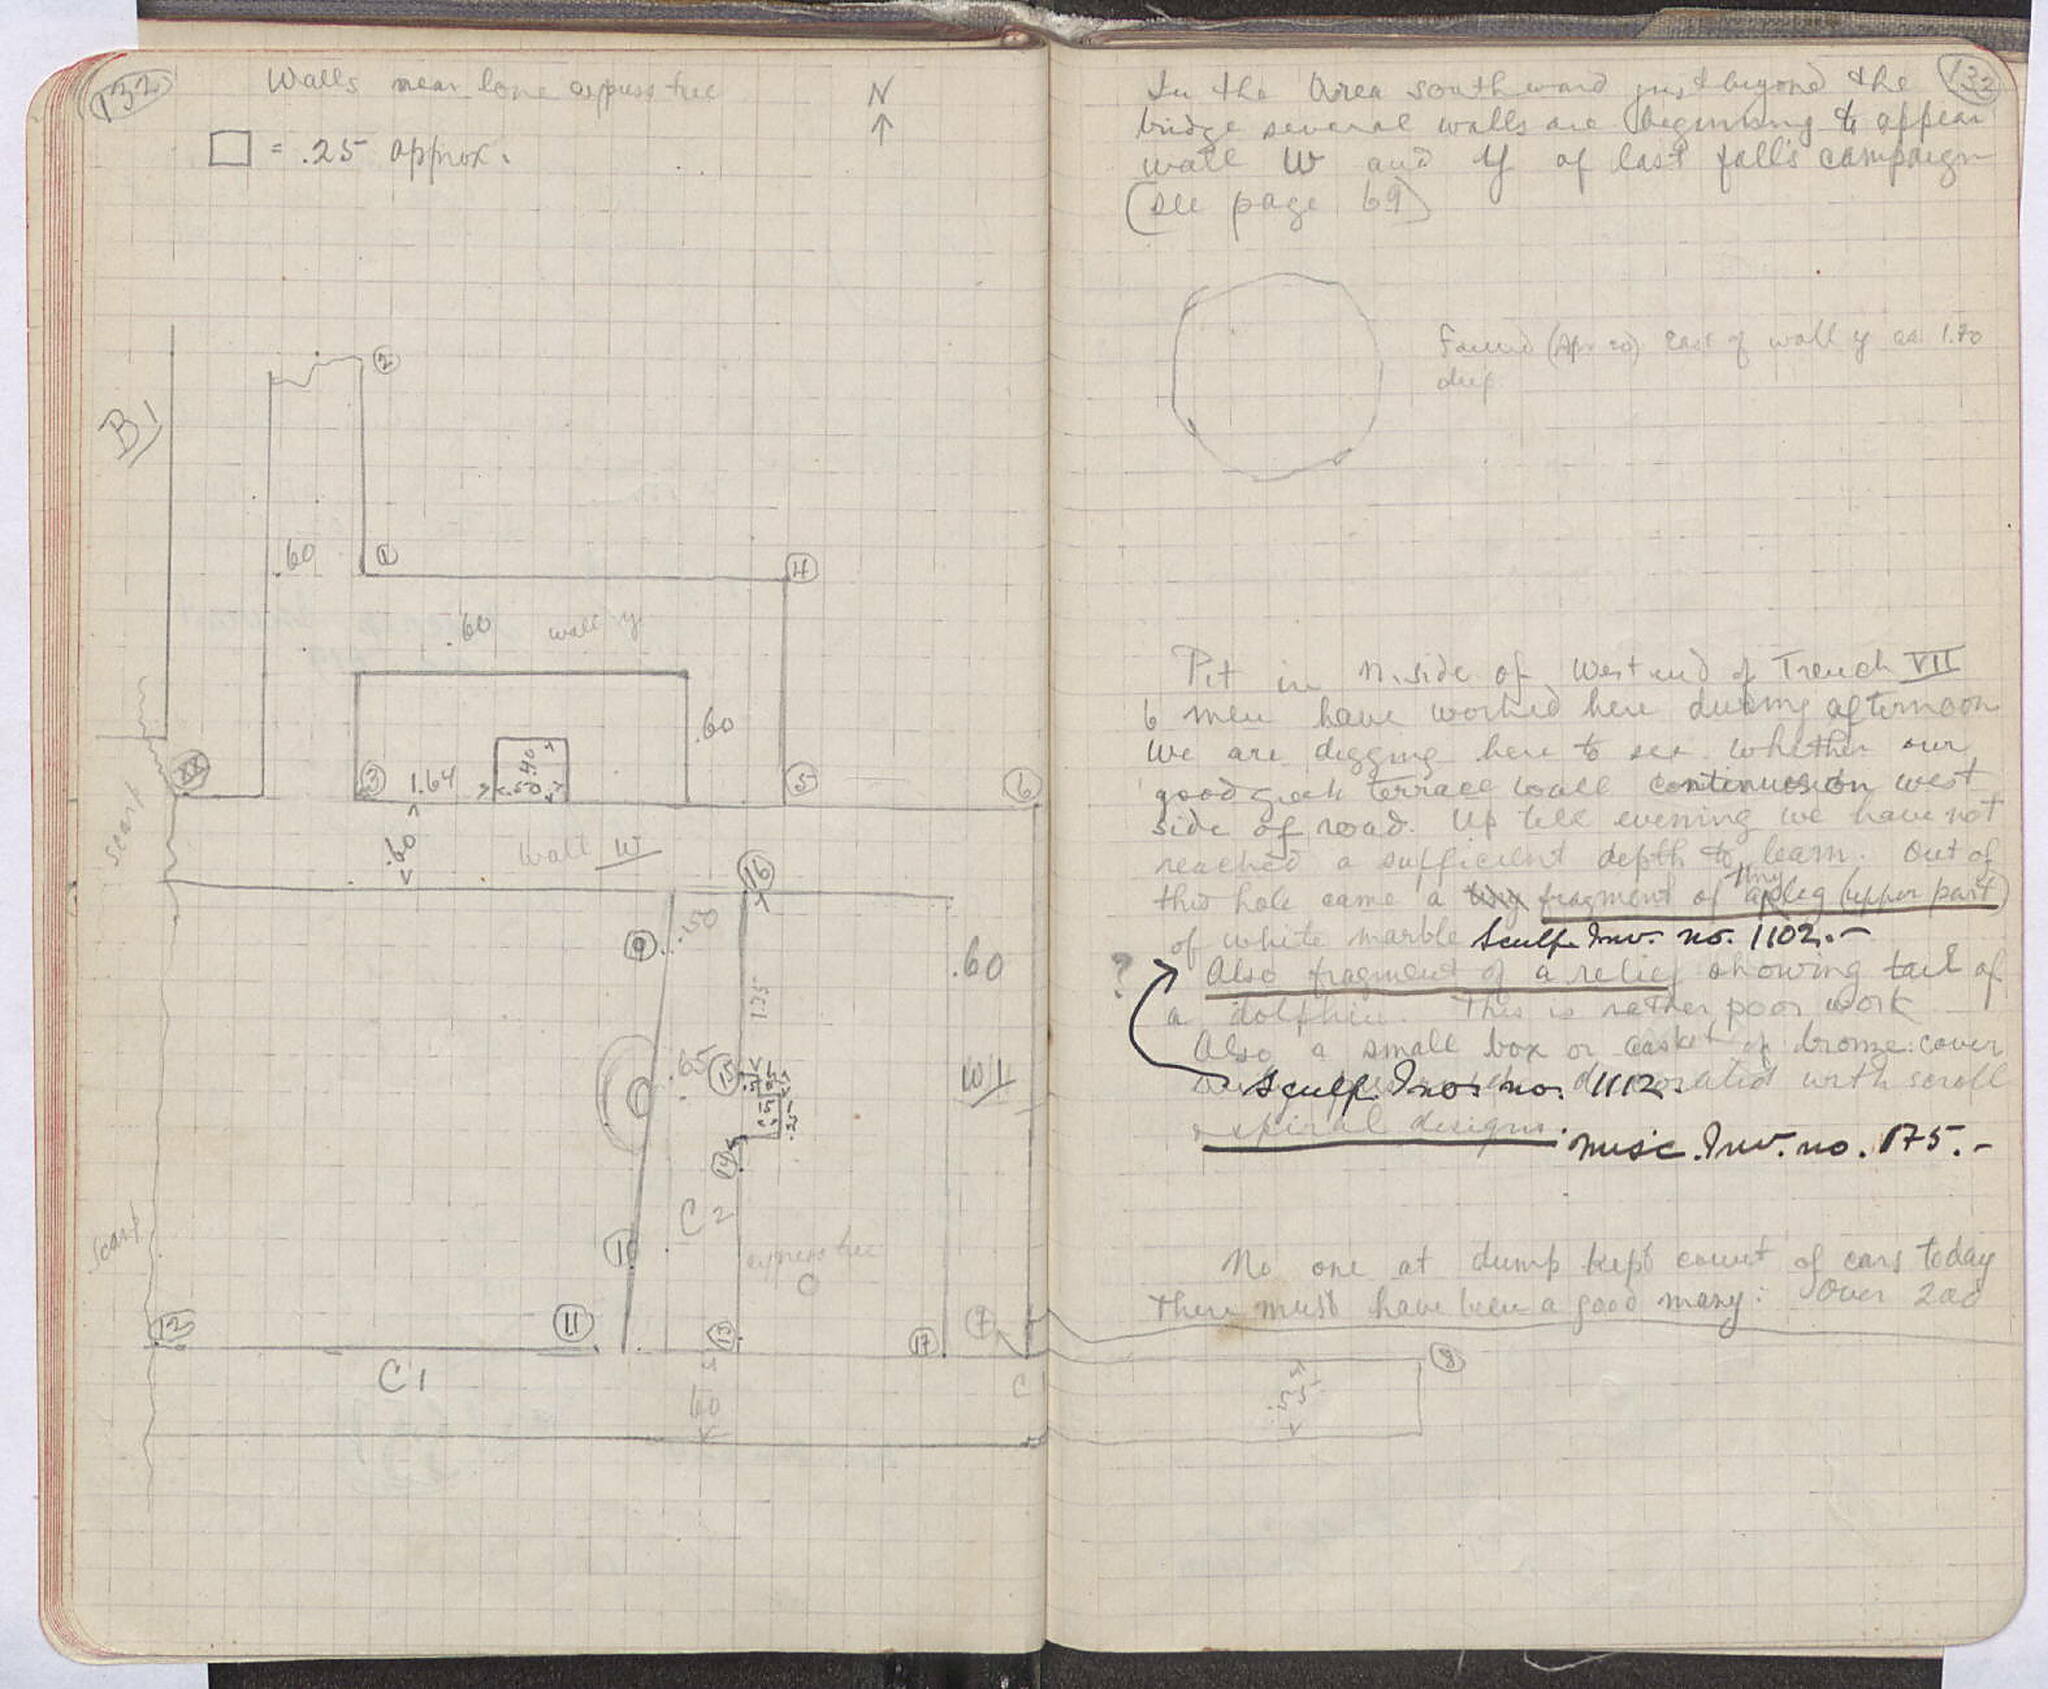 132
Walls near lone cypress tree
N
= .25 approx.
2
B1
.60
1
4
.60 wall y
.60
XX
3
1.64
.50
.40
5
6
scarp
.60
Wall W
16
9
.50
.60
1.25
.65
15
.25
W1
14
C2
10
cypress tree
scarp
12
11
13
17
7
C1
60
C
132
In the area southward just beyond the
bridge several walls are beginning to appear
wall W and Y of last fall's campaign
(see page 69)
Found (Apr 20) East of wall y ca. 1.70
deep
Pit in N. side of West end of Trench VII
6 men have worked here during afternoon
We are digging here to see whether our
good Greek terrace wall continues on west
side of road. Up till evening we have not
reached a sufficient depth to learn. Out of
this hole came a tiny fragment of a tiny leg (upper part)
of white marble Sculp. Inv. no. 1102.-
? Also fragment of a relief showing tail of
a dolphin. This is rather poor work
Also a small box or casket of bronze: cover
Sculp. Inv. no. 1112. decorated with scroll
& spiral designs. Misc. Inv. no. 175.-
No one at dump kept count of cars today
There must have been a good many: Over 200
8
.55